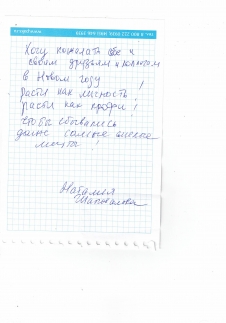 Хочу пожелать себе и
своим друзьям и коллегам
в Новом году!
расти как личность!
расти как профи!
чтобы сбывались
даже самые смелые
мечты!
Наталия